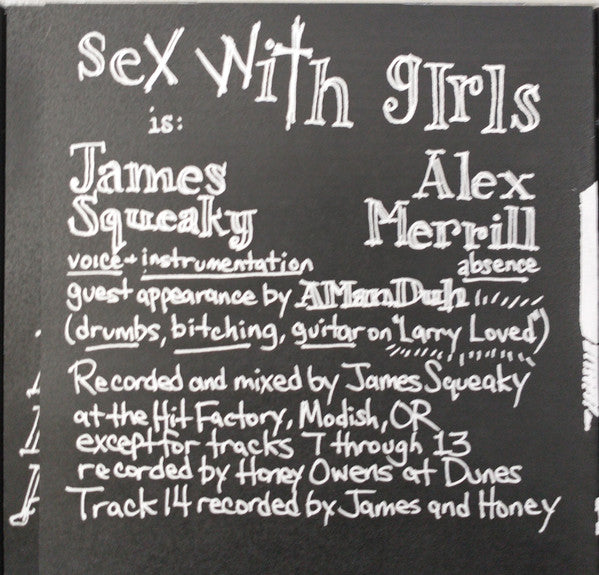 sex with girls
is:
James Alex
Squeaky Merrill
voice + instrumentation absence
guest appearance by AManDuh
(drumbs, bitching, guitar on "Larry Loved")
Recorded and mixed by James Squeaky
at the Hit Factory, Modish, OR
except for tracks 7 through 13
recorded by Honey Owens at Dunes
Track 14 recorded by James and Honey